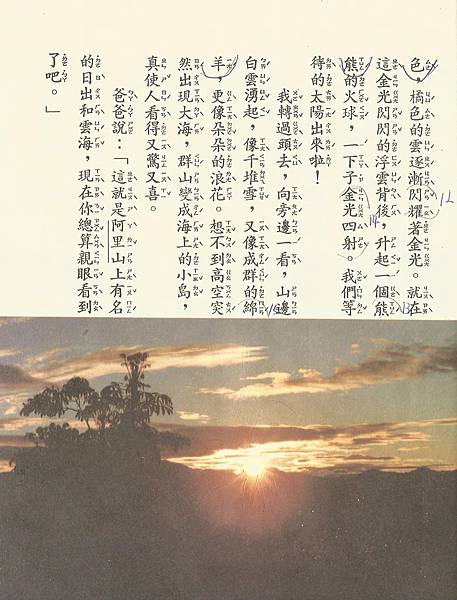 色，橘色的雲逐漸閃耀著金光。就在
這金光閃閃的浮雲背後，升起一個熊
熊的火球，一下子金光四射。我們等
待的太陽出來啦！
我轉過頭去，向旁邊一看，山邊
白雲湧起，像千堆雪，又像成群的綿
羊，更像朵朵的浪花。想不到高空突
然出現大海，群山變成海上的小島，
真使人看得又驚又喜。
爸爸說：「這就是阿里山上有名
的日出和雲海，現在你總算親眼看到
了吧。」